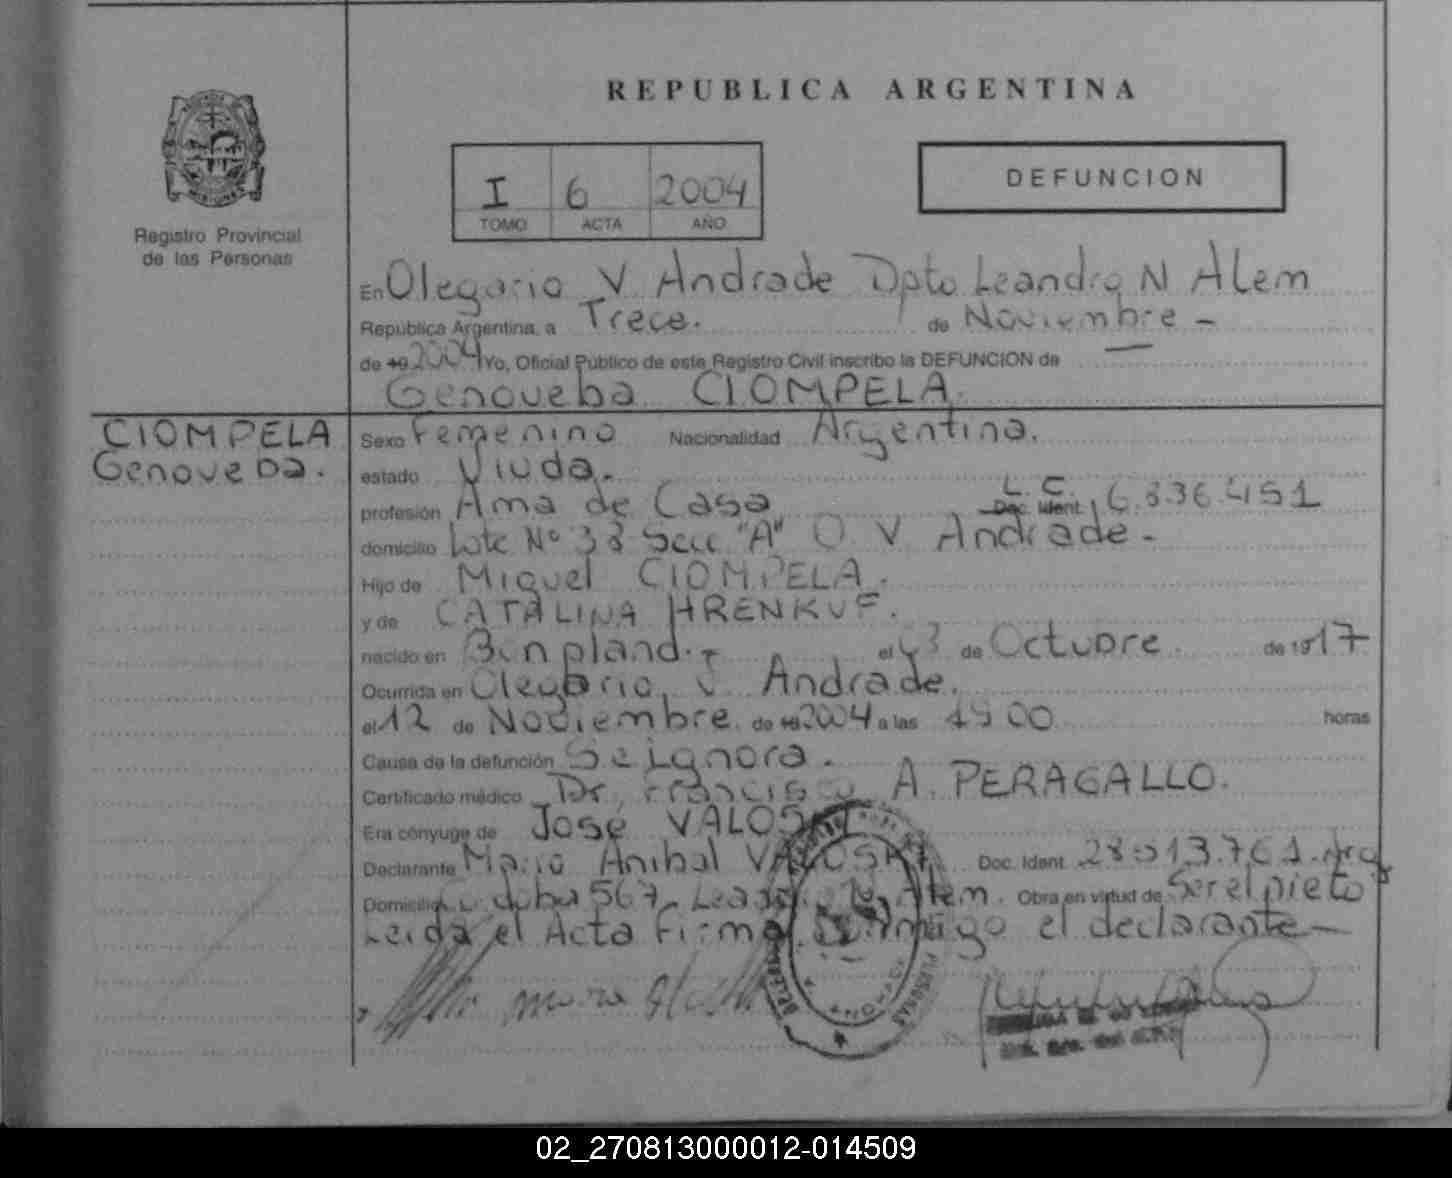 REPUBLICA ARGENTINA
I 6 2004
TOMO ACTA AÑO
DEFUNCION
Registro Provincial
de las Personas
En Olegario V Andrade Dpto Leandro N Alem
República Argentina, a Trece. de Noviembre -
de 19 2004 Yo, Oficial Público de este Registro Civil inscribo la DEFUNCION de
Genoveba CIOMPELA.
CIOMPELA
Genoveba.
Sexo Femenino Nacionalidad Argentina.
estado Viuda.
profesión Ama de Casa L. C. Doc. Ident. 6.336.451
domicilio Lote Nº 38 Secc "A" O V Andrade -
Hijo de Miguel CIOMPELA.
y de CATALINA HRENKUF.
nacido en Bonpland. - el 3 de Octubre. de 19 17
Ocurrida en Olegario V Andrade.
el 12 de Noviembre. de 19 2004 a las 00 horas
Causa de la defunción Se ignora.
Certificado médico Dr. Francisco A. PERAGALLO.
Era cónyuge de Jose VALOSKI
Declarante Mario Anibal VALOSKI Doc. Ident. 28.013.761. Arg
Domicilio Cordoba 567. Leandro N. Alem. Obra en virtud de Ser el nieto
Leida el Acta Firma conmigo el declarante -
02_270813000012-014509